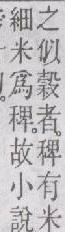 之似穀者。稗有米
細米爲稗。故小說